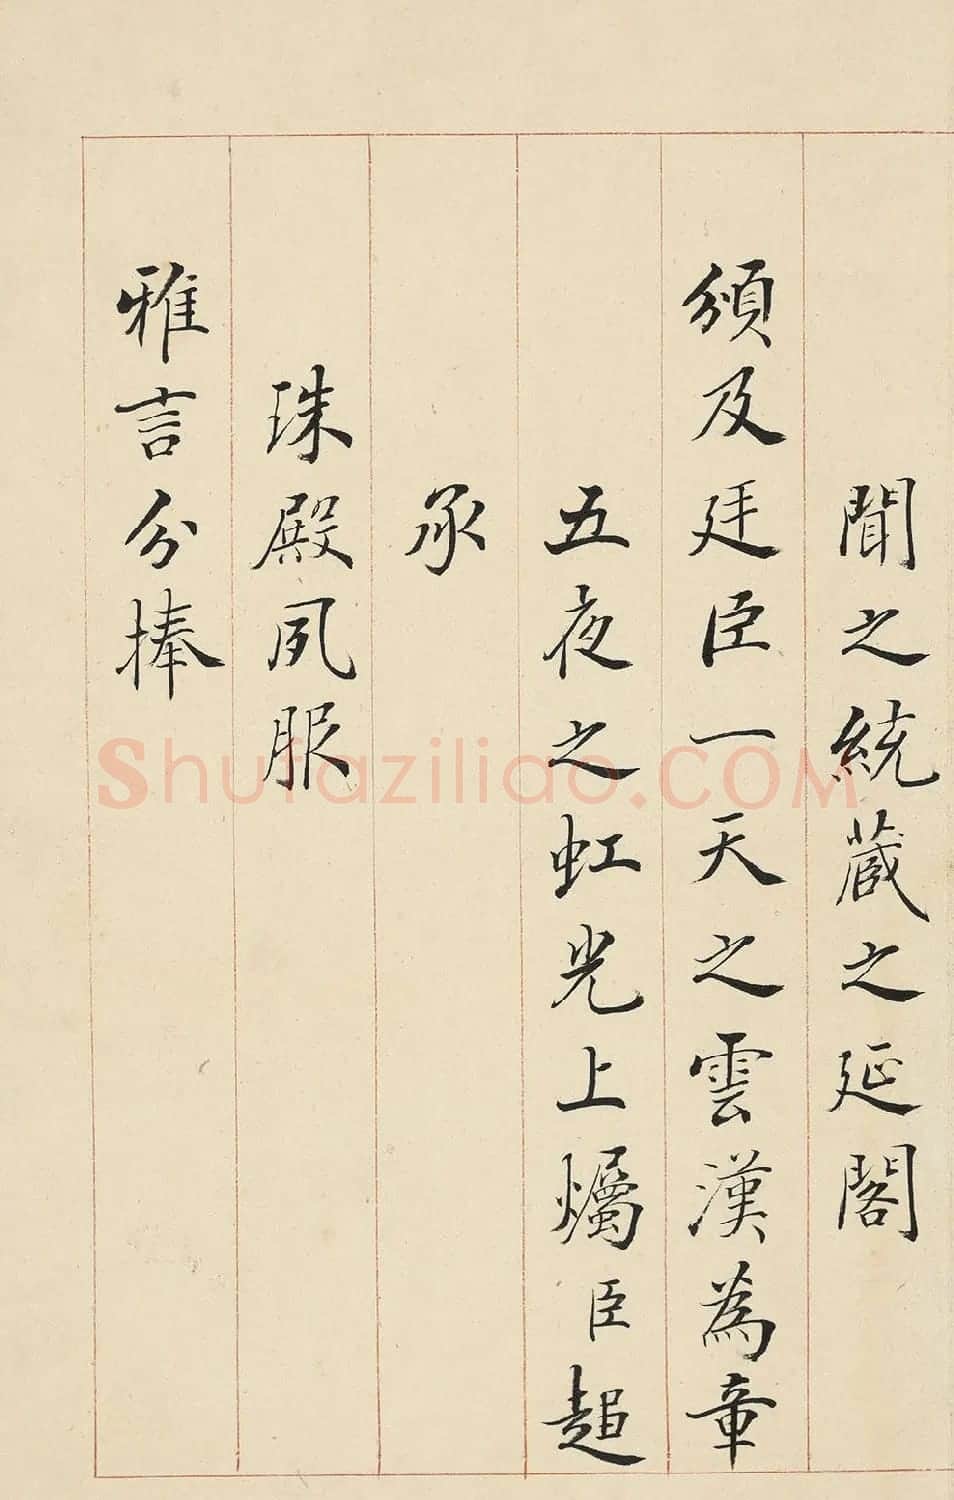 聞之統藏之延閣
頒及廷臣一天之雲漢為章
五夜之虹光上燭臣超
承
珠殿夙服
雅言分捧
Shufaziliao.COM